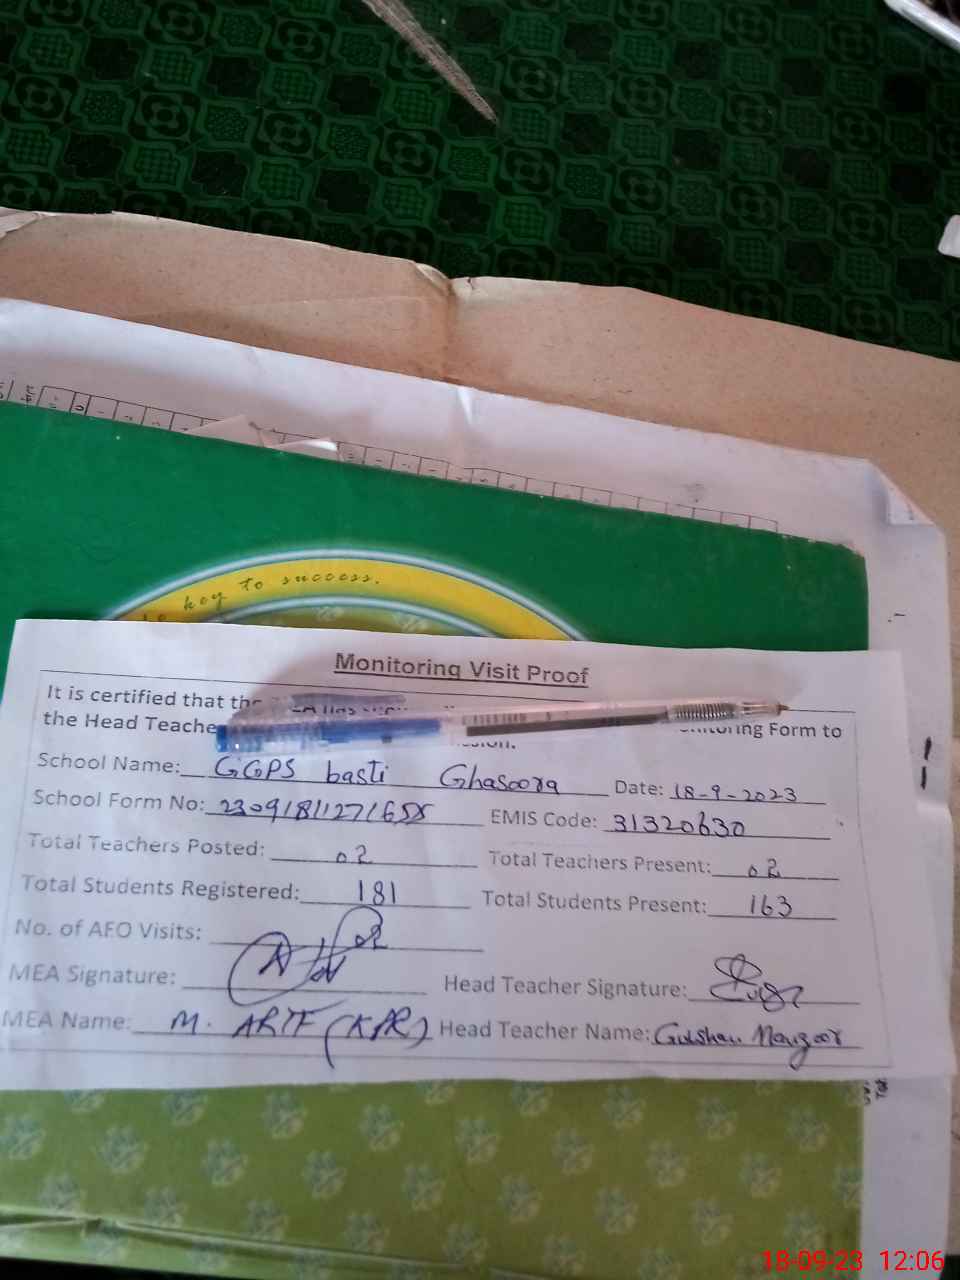 key to success.
Monitoring Visit Proof
It is certified that the
the Head Teache Form to
School Name: GGPS basti Ghasoora Date: 18-9-2023
School Form No: EMIS Code: 31320630
Total Teachers Posted: 02 Total Teachers Present: 02
Total Students Registered: 181 Total Students Present: 163
No. of AEO Visits: 02
MEA Signature: Head Teacher Signature:
MEA Name: M. ARIF (KPR) Head Teacher Name: Gulshan Manzoor
18-09-23 12:06